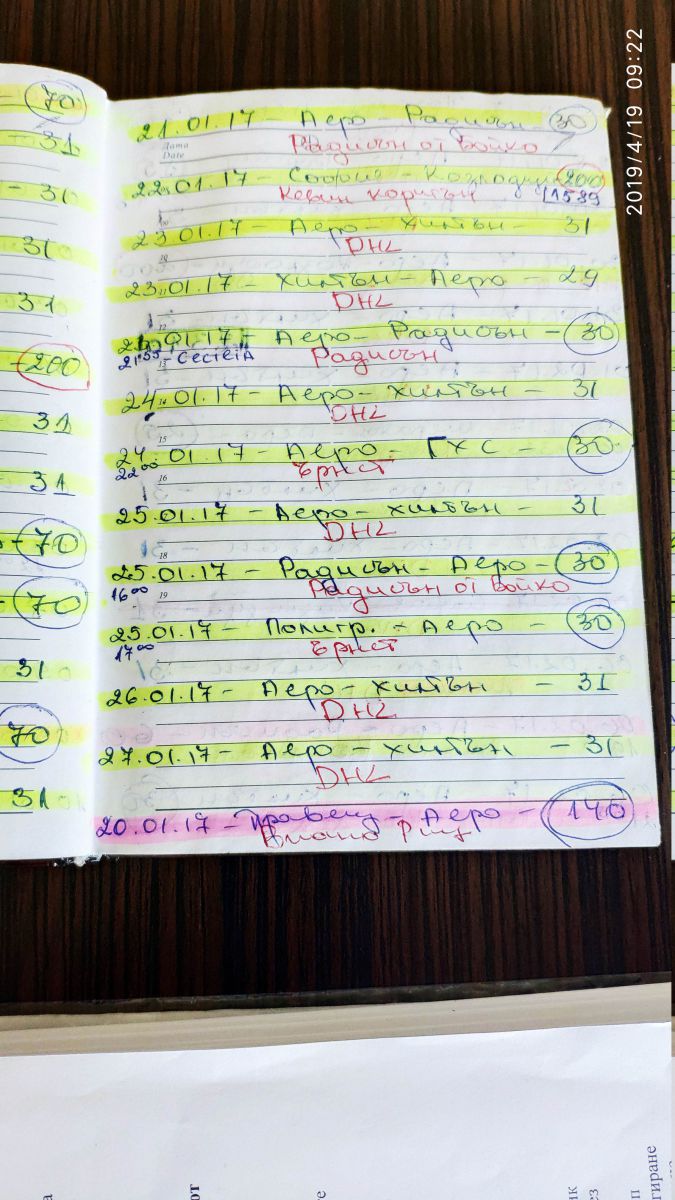 2019/4/19 09:22
70
31
31
31
31
200
31
31
70
70
31
70
31
21.01.17 - Аеро - Радисън - 30
Дата
Date
Радисън от Бойко
22.01.17 - София - Козлодуй 200
Кевин 1539
23.01.17 - Аеро - Хилтън - 31
DHL
23.01.17 - Хилтън - Аеро - 29
DHL
01.17 - Аеро - Радисън - 30
21 55 - Радисън
24.01.17 - Аеро - Хилтън - 31
DHL
24.01.17 - Аеро - ГХС - 30
22 00 Ърнст
25.01.17 - Аеро - Хилтън - 31
DHL
25.01.17 - Радисън - Аеро - 30
16 00 Радисън от Бойко
25.01.17 - Полигр. - Аеро - 30
17 00 Ърнст
26.01.17 - Аеро - Хилтън - 31
DHL
27.01.17 - Аеро - Хилтън - 31
DHL
20.01.17 - Правец - Аеро - 140
от
гиране